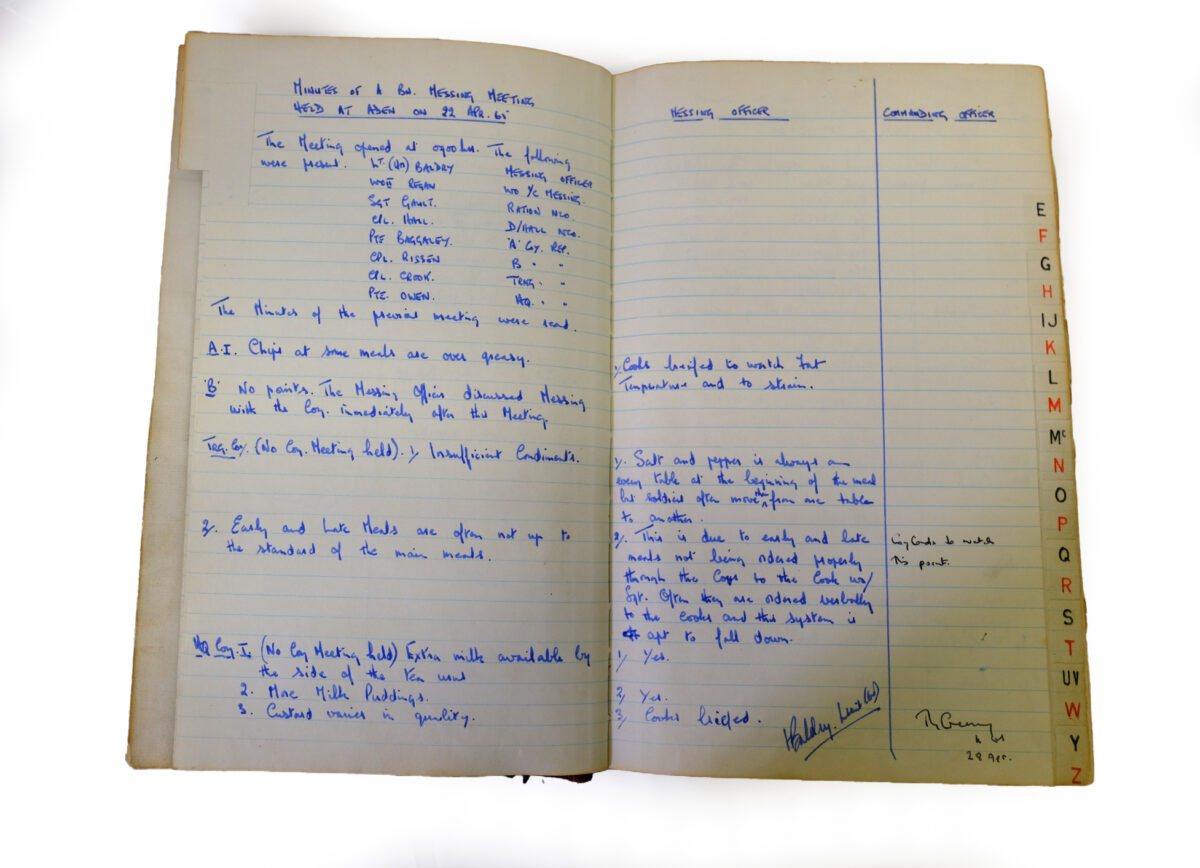 MINUTES OF A BN. MESSING MEETING
HELD AT ADEN ON 22 APR. 65
The Meeting opened at 0900 hrs. The following
were present. LT. (QM) BALDRY MESSING OFFICER
WOII REGAN WO I/C MESSING.
SGT GAULT. RATION NCO.
CPL. HALL. D/HALL NCO.
PTE BAGGALEY. 'A' COY. REP.
CPL. RISSEN B " "
CPL. CROOK. TRNG. " "
PTE. OWEN. HQ. " "
The Minutes of the previous meeting were read.
A.I. Chips at some meals are over greasy.
'B' No points. The Messing Officer discussed Messing
with the Coy. immediately after this Meeting
TRG. Coy. (No Coy. Meeting held). 1/ Insufficient Condiments.
2/. Early and Late Meals are often not up to
the standard of the main meals.
HQ Coy. I. (No Coy Meeting held) Extra milk available by
the side of the tea urns
2. More Milk Puddings.
3. Custard varies in quality.
MESSING OFFICER
1/ Cooks briefed to watch fat
Temperature and to strain.
1/. Salt and pepper is always on
every table at the beginning of the meal
but soldiers often move them from one table
to another.
2/. This is due to early and late
meals not being ordered properly
through the Coys to the Cook WO/
Sgt. Often they are ordered verbally
to the cooks and this system is
apt to fall down.
1/ Yes.
2/ Yes.
3/ Cooks briefed.
HBaldry. Lieut (QM)
COMMANDING OFFICER
Coy Comds to watch
this point.
Lt Col
28 Apr.
E
F
G
H
IJ
K
L
M
Mc
N
O
P
Q
R
S
T
UV
W
Y
Z